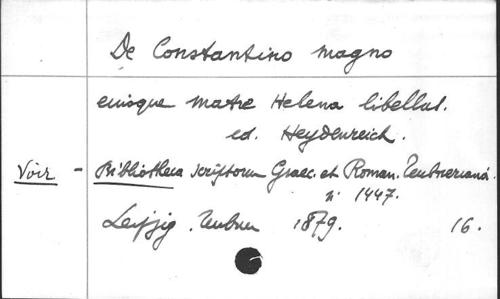 De Constantino Magno
eiusque matre Helena libellus.
ed. Heydenreich.
Voir - Bibliotheca scriptorum Graec. et Roman. Teubneriana.
n° 1447.
Leipzig. Teubner 1879. 16.